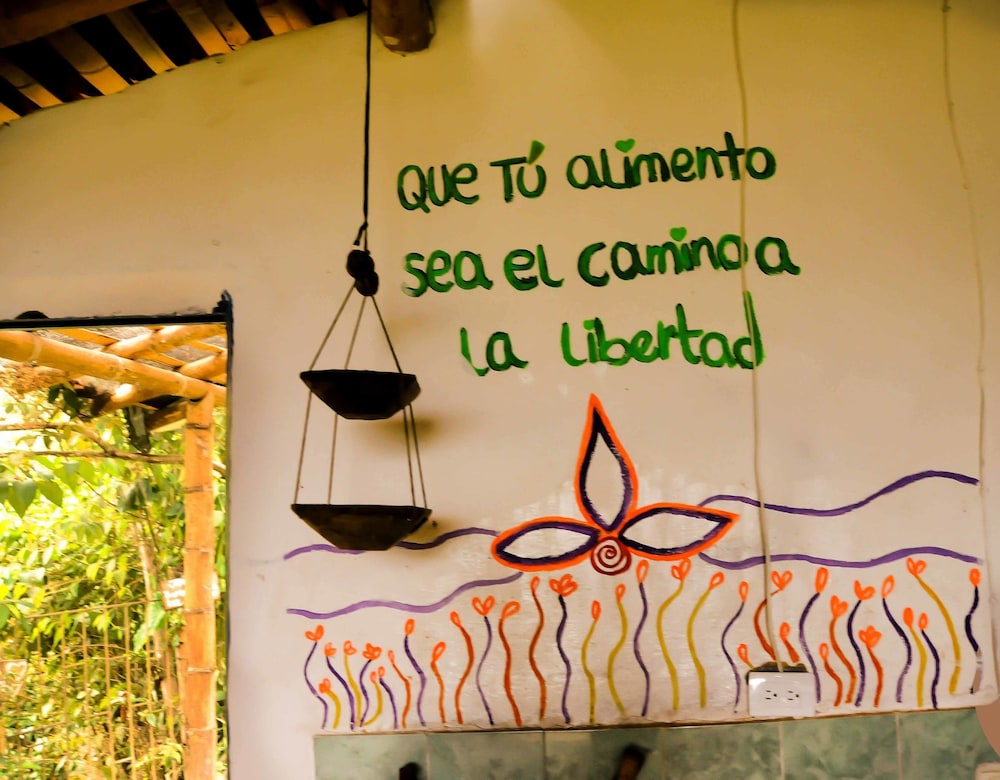 Que Tú alimento
sea el camino a
la libertad